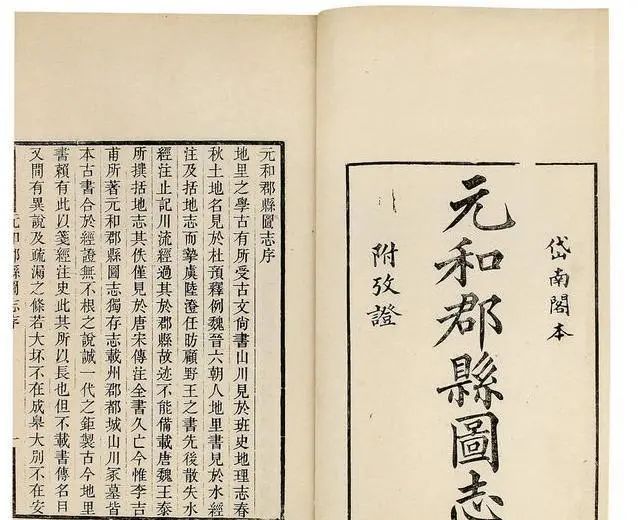 岱南閣本
元和郡縣圖志
附攷證
元和郡縣圖志序
地里之學古有所受古文尙書山川見於班史地理志春
秋土地名見於杜預釋例魏晉六朝人地里書見於水經
注及括地志而摯虞陸澄任昉顧野王之書先後散失水
經注止記川流經過其於郡縣故迹不能備載唐魏王泰
所撰括地志其佚僅見於唐宋傳注全書久亡今惟李吉
甫所著元和郡縣圖志獨存志載州郡都城山川冢墓皆
本古書合於經證無不根之說誠一代之鉅製古今地里
書賴有此以箋經注史此其所以長也但不載書傳名目
又間有異說及疏漏之條若大坏不在成皐大別不在安
元和郡縣圖志序 一